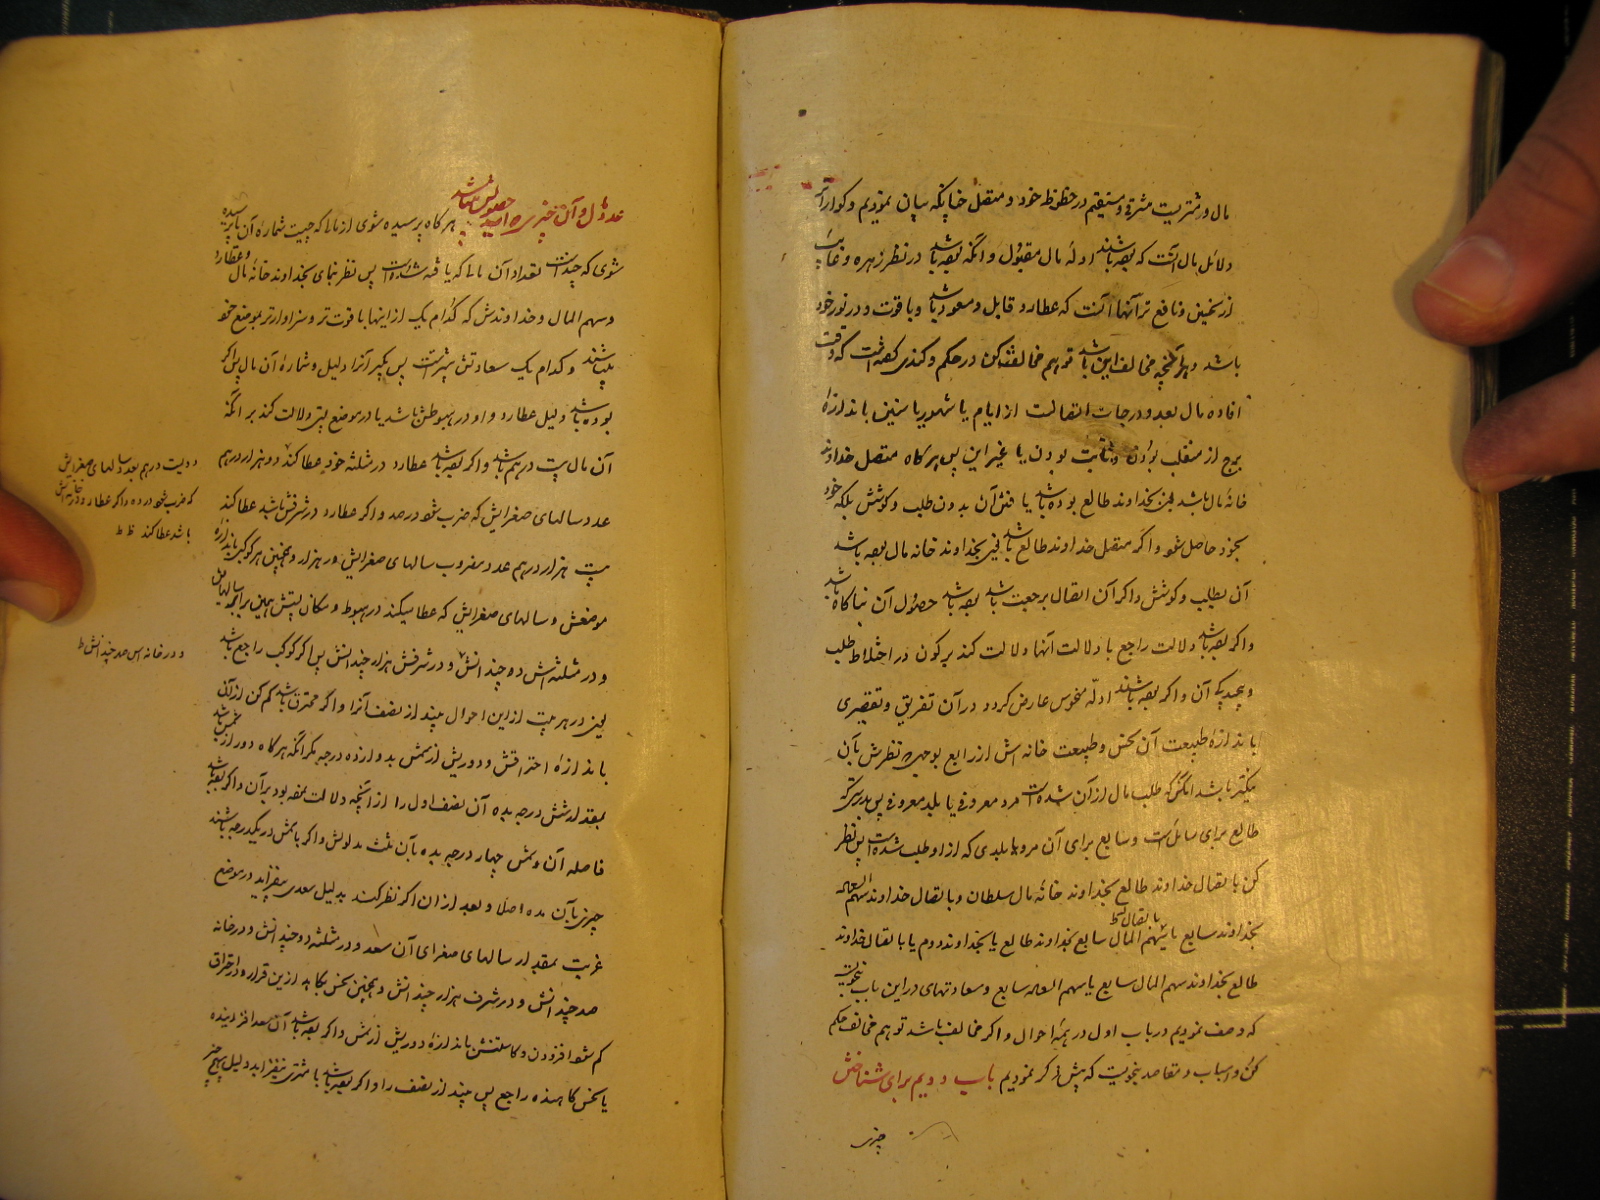 مال و مشتریست مشرقی و مستقیم در حظوظ خود و متصل چنانکه بیان نمودیم و گواراتر
دلائل مال آنست که بوده باشند ادلهٔ مال مقبول و آنکه بوده باشد در نظر زهره و غائب
از نحسین و نافع ترآنها آنست که عطارد قابل و مسعود باشد و با قوت و در نور خود
باشد و هر آنچه مخالف این باشد تو هم مخالفت کن در حکم و کندی گفته است که وقت
افادهٔ مال بعدد درجات اتصالست از ایام یا شهور یا سنین باندازهٔ
برج از منقلب بودن و ثابت بودن یا غیر این پس هرگاه متصل خداوند
خانهٔ مال باشد بخداوند طالع بوده باشد یافتن آن بدون طلب و کوشش بلکه خود
بخود حاصل شود و اگر متصل خداوند طالع باشد بخداوند خانه مال بوده باشد
آن بطلب و کوشش و اگر آن اتصال برجعت باشد بوده باشد حصول آن بناگاه
و اگر بوده باشد دلالت راجع با دلالت آنها دلالت کند برگون در اختلاط طلب
و پیچیدگی آن و اگر بوده باشند ادلّه منحوس عارض گردد در آن تفریق و تقصیری
باندازهٔ طبیعت آن نحس و طبیعت خانه اش از رابع بوجهی نظرش بآن
باشد آنکس که طلب مال از آن شده است مرد معروفی یا بلد معروفی پس بدرستی که
طالع برای سائل است و سابع برای آن مرد یا بلدی که از او طلب شده است پس نظر
کن باتصال خداوند طالع بخداوند خانهٔ مال سلطان و باتصال خداوند سهم السعاده
بخداوند سابع یا بسهم المال سابع بخداوند طالع یا بخداوند دوم یا باتصال خداوند
باتصال
طالع بخداوند سهم المال سابع یا سهم السعاده سابع و سعادتهای در این باب بنحویست
که وصف نمودیم در باب اول در همهٔ احوال و اگر مخالف باشد تو هم مخالف حکم
کن و اسباب و مقاصد بنحویست که پیش ذکر نمودیم باب دویم برای شناختن
چیزی
عدد مال و آن چیزی که امید حصولش میباشد هرگاه پرسیده شوی از مالی که چیست شماره آن یا پرسیده
شوی که چند است تعداد آن مالی که یافته شده است پس نظر نمای بخداوند خانهٔ مال و عطارد
و سهم المال و خداوندش که کدام یک از اینها با قوت تر و سزاوارتر بموضع خود
میباشند و کدام یک سعادتش بیشتر است پس بگیر آنرا دلیل و شمارهٔ آن مال پس اگر
بوده باشد دلیل عطارد و او در هبوطش باشد یا در موضع پستی دلالت کند بر آنکه
آن مال بیست درهم باشد و اگر بوده باشد عطارد در مثلثه خود عطا کند دو هزار درهم
عدد سالهای صغرایش که ضرب شود در صد و اگر عطارد در شرفش باشد عطا کند
بیست هزار درهم عدد مضروب سالهای صغرایش در هزار و همچنین هر کوکبی باندازهٔ
موضعش و سالهای صغرایش که عطا میکند در هبوط و مکان پستش همین برابر سالهایش
و در مثلثه اش ده چندانش و در شرفش هزار چندانش پس اگر کوکب راجع باشد
یعنی در هر بیت از این احوال بیند از نصف آنرا و اگر محترق باشد کم کن از آن
باندازهٔ احتراقش و دوریش از شمس بدوازده درجه مگر آنکه هرگاه دور از شمس باشد
بمقدار شش درجه بده آن نصف اول را از آنچه دلالت نموده بود بر آن و اگر بوده باشد
فاصله آن و شمس چهار درجه بده بآن ثلث مدلولش و اگر با شمس در یکدرجه باشند
چیزی بآن مده اصلا و بعد از آن اگر نظر کند بدلیل سعدی بیفزاید در موضع
غربت بمقدار سالهای صغرای آن سعد و در مثلثه ده چندانش و در خانه
صد چندانش و در شرف هزار چندانش و همچنین نحس بکاهد از این قرار و در احتراق
کم شود افزودن و کاستنش باندازهٔ دوریش از شمس و اگر بوده باشد آن سعد افزاینده
یا نحس کاهنده راجع پس بیند از نصف را و اگر بوده باشد با مشتری بیفزاید دلیل
دویست درهم بعدد سالهای صغرایش
که ضرب شود در ده و اگر عطارد در خانه اش
باشد عطا کند ظ ط
و در خانه اش صد چندانش ط